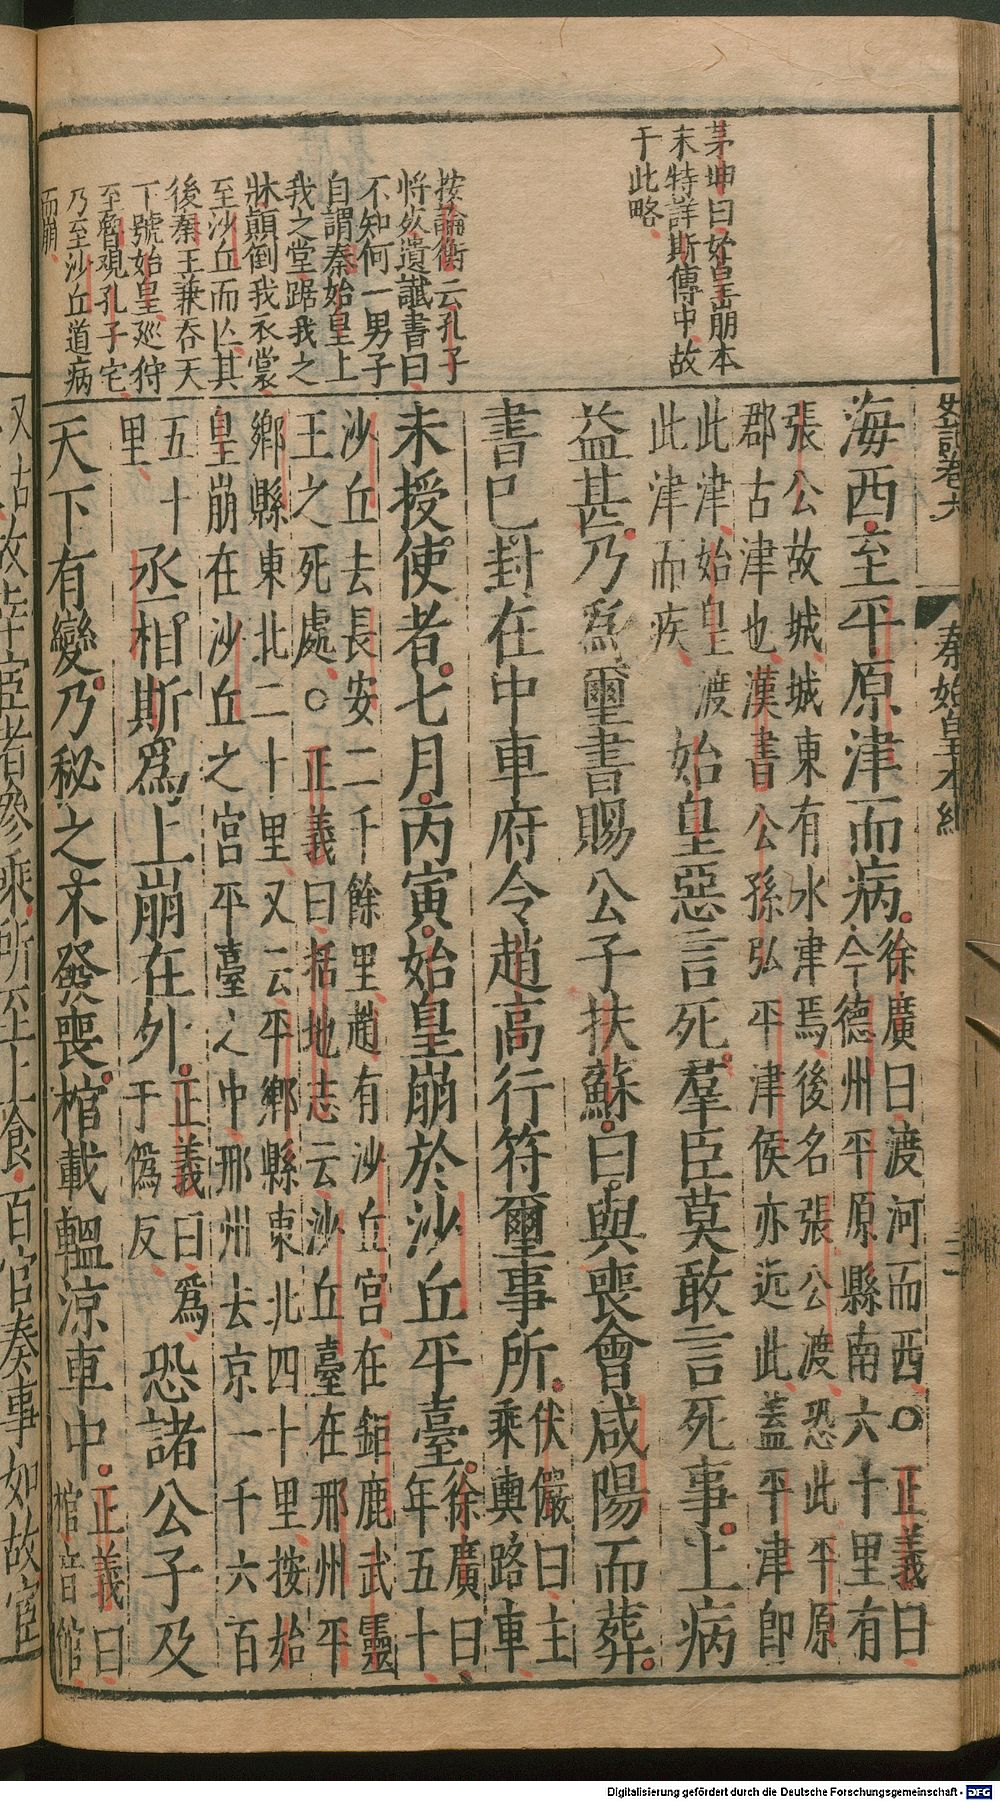 史記卷六
秦始皇本紀
茅坤曰始皇崩本
末特詳斯傳中故
于此略
按論衡云孔子
將死遺讖書曰
不知何一男子
自謂秦始皇上
我之堂踞我之
牀顛倒我衣裳
至沙丘而亡其
後秦王兼吞天
下號始皇巡狩
至魯觀孔子宅
乃至沙丘道病
而崩
海西至平原津而病徐廣曰渡河而西○正義曰
今德州平原縣南六十里有
張公故城城東有水津焉後名張公渡恐此平原
郡古津也漢書公孫弘平津侯亦近此蓋平津即
此津始皇渡
此津而疾
始皇惡言死羣臣莫敢言死事上病
益甚乃爲璽書賜公子扶蘇曰與喪會咸陽而葬
書已封在中車府令趙高行符璽事所伏儼曰主
乘輿路車
未授使者七月丙寅始皇崩於沙丘平臺徐廣曰
年五十
沙丘去長安二千餘里趙有沙丘宮在鉅鹿武靈
王之死處○正義曰括地志云沙丘臺在邢州平
鄉縣東北二十里又云平鄉縣東北四十里按始
皇崩在沙丘之宮平臺之中邢州去京一千六百
五十
里
丞相斯爲上崩在外正義曰爲
于僞反
恐諸公子及
天下有變乃秘之不發喪棺載轀涼車中正義曰
棺音館
又古
故幸宦者參乘所至上食百官奏事如故宦
Digitalisierung gefördert durch die Deutsche Forschungsgemeinschaft - DFG